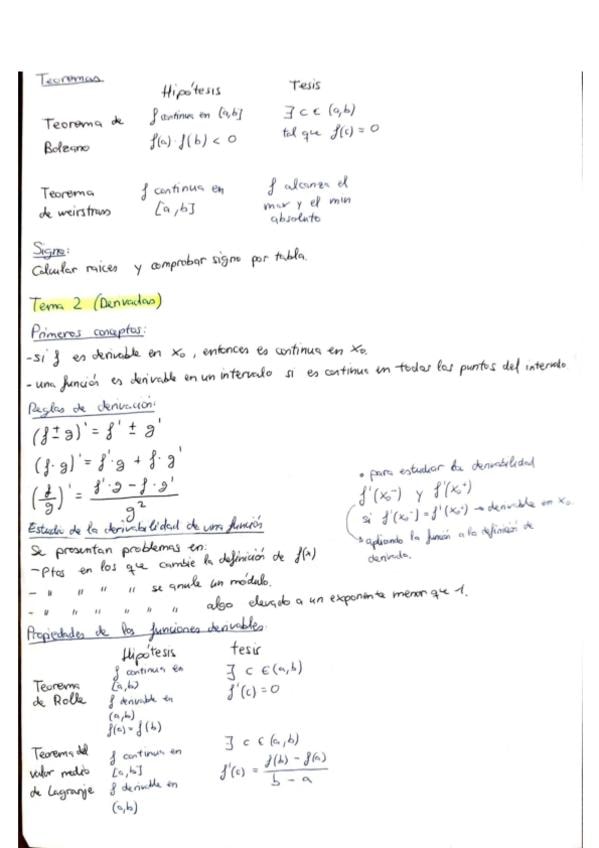 Teoremas
Hipótesis Tesis
Teorema de Bolzano
f continua en [a,b]
f(a)·f(b) < 0
∃ c ∈ (a,b)
tal que f(c) = 0
Teorema
de weirstrass
f continua en
[a,b]
f alcanza el
max y el min
absoluto
Signo:
Calcular raices y comprobar signo por tabla.
Tema 2 (Derivadas)
Primeros conceptos:
- si f es derivable en x₀, entonces es continua en x₀.
- una función es derivable en un intervalo si es continua en todos los puntos del intervalo
Reglas de derivación:
(f ± g)' = f' ± g'
(f·g)' = f'·g + f·g'
(f/g)' = f'·g - f·g' / g²
• para estudiar la derivabilidad
f'(x₀⁻) y f'(x₀⁺)
si f'(x₀⁻) = f'(x₀⁺) → derivable en x₀
aplicando la función a la definición de
derivada.
Estudio de la derivabilidad de una función
Se presentan problemas en:
- Ptos en los que cambie la definición de f(x)
- " " " " se anule un módulo.
- " " " " " " algo elevado a un exponente menor que 1.
Propiedades de las funciones derivables:
Hipótesis tesis
Teorema
de Rolle
f continua en
[a,b]
f derivable en
(a,b)
f(a) = f(b)
∃ c ∈ (a,b)
f'(c) = 0
Teorema del
valor medio
de Lagranje
f continua en
[a,b]
f derivable en
(a,b)
∃ c ∈ (a,b)
f'(c) = f(b) - f(a) / b - a